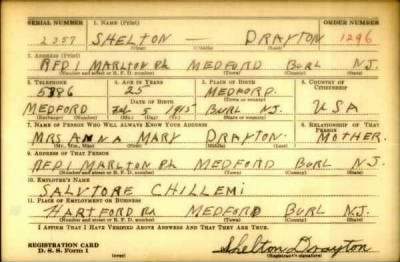 SERIAL NUMBER 1. NAME (Print) ORDER NUMBER
2257 SHELTON — DRAYTON 1296
(First) (Middle) (Last)
2. ADDRESS (Print)
RFD1 MARLTON Rd. MEDFORD BURL N.J.
(Number and street or R. F. D. number) (Town) (County) (State)
3. TELEPHONE 4. AGE IN YEARS 5. PLACE OF BIRTH 6. COUNTRY OF CITIZENSHIP
5886 25 MEDFORD.
DATE OF BIRTH (Town or county)
MEDFORD 5 1915 BURL N.J. USA
(Exchange) (Number) (Mo.) (Day) (Yr.) (State or country)
7. NAME OF PERSON WHO WILL ALWAYS KNOW YOUR ADDRESS 8. RELATIONSHIP OF THAT PERSON
MRS ANNA MARY DRAYTON. MOTHER.
(Mr., Mrs., Miss) (First) (Middle) (Last)
9. ADDRESS OF THAT PERSON
RFD1 MARLTON Rd. MEDFORD BURL N.J.
(Number and street or R. F. D. number) (Town) (County) (State)
10. EMPLOYER'S NAME
SALVTORE CHILLEMI
11. PLACE OF EMPLOYMENT OR BUSINESS
HARTFORD Rd MEDFORD BURL N.J.
(Number and street or R. F. D. number) (Town) (County) (State)
I AFFIRM THAT I HAVE VERIFIED ABOVE ANSWERS AND THAT THEY ARE TRUE.
REGISTRATION CARD Shelton Drayton
D. S. S. Form 1 (Registrant's signature)